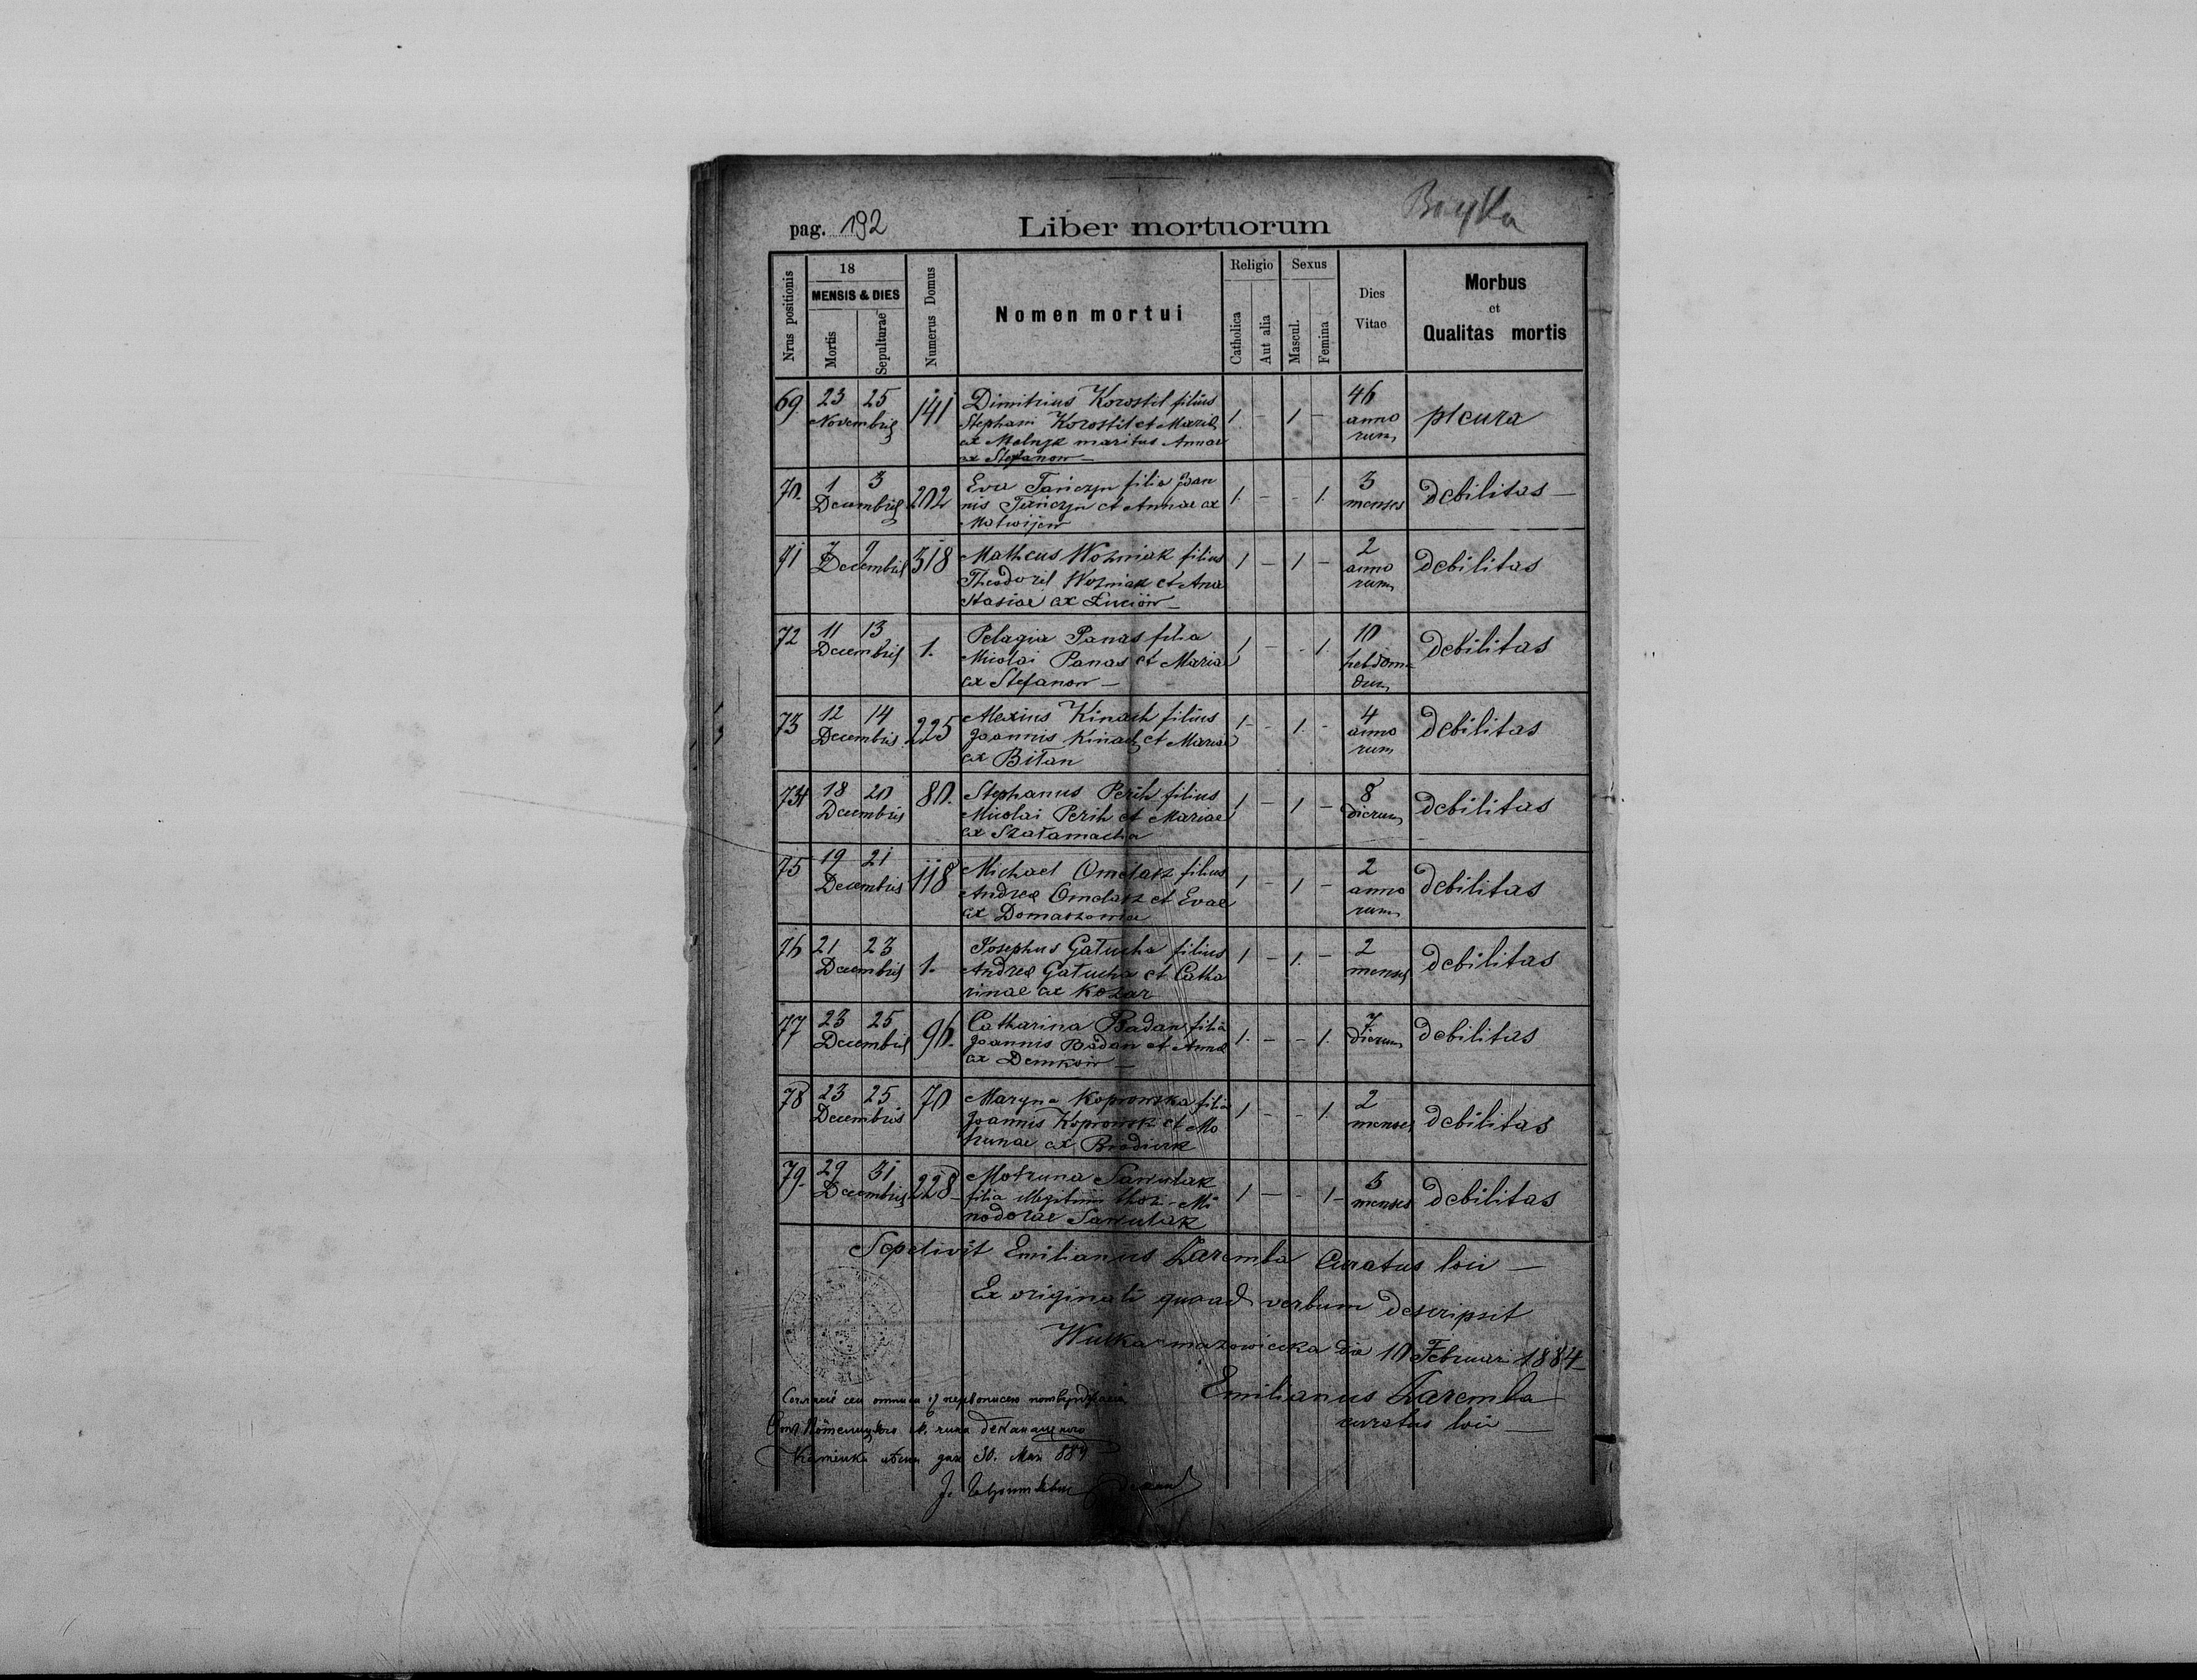 pag. 192
Liber mortuorum
Nrus positionis
18
MENSIS & DIES
Mortis
Sepulturae
Numerus Domus
Nomen mortui
Religio
Catholica
Aut alia
Sexus
Mascul.
Femina
Dies
Vitae
Morbus
et
Qualitas mortis
69 23 25 141 Dimitrius Korostil filius 1. - 1 - 46
Novembris Stephani Korostil et Mariae anno pleura
ex Melnyk maritus Annae rum
ex Stefanow -
70. 1 3 202 Eva Tańczyn filia Joan 1. - - 1. 3
Decembris nis Tańczyn et Annae ex menses debilitas -
Matwijow
71 7 9 318 Matheus Woźniak filius 1 - 1 - 2
Decembris Theodori Woźniak et Ana anno debilitas
stasiae ex Łuciów - rum
72 11 13 1. Pelagia Panas filia 1 - - 1. 10
Decembris Nicolai Panas et Mariae hebdoma debilitas
ex Stefanow - dum
73 12 14 225 Alexius Kinach filius 1 - 1. - 4
Decembris Joannis Kinach et Mariae anno debilitas
ex Bitan rum
74 18 20 80. Stephanus Perih filius 1 - 1 - 8
Decembris Nicolai Perih et Mariae dierum debilitas
ex Szałamacha
75 19 21 118 Michael Omelasz filius 1 - 1 - 2
Decembris Andreae Omelasz et Evae anno debilitas
ex Domaszowa rum
76 21 23 1. Josephus Gałucha filius 1 - 1. - 2
Decembris Andreae Gałucha et Catha menses debilitas
rinae ex Kozar
77 23 25 96. Catharina Badan filia 1. - - 1. 7
Decembris Joannis Badan et Annae dierum debilitas
ex Demków -
78 23 25 70 Maryna Koprowska filia 1 - - 1. 2
Decembris Joannis Koprowsk et Mo menses debilitas
trunae ex
79. 29 31 228 Motruna Sawulak 1 - - 1 - 5
Decembris filia illegitimi thori - Mi menses debilitas
nodorae Sawulak
Sepelivit Emilianus Zaremba Curatus loci -
Ex originali quoad verbum descripsit
Wulka mazowiecka die 10 Februari 1884
Emilianus Zaremba
curatus loci -